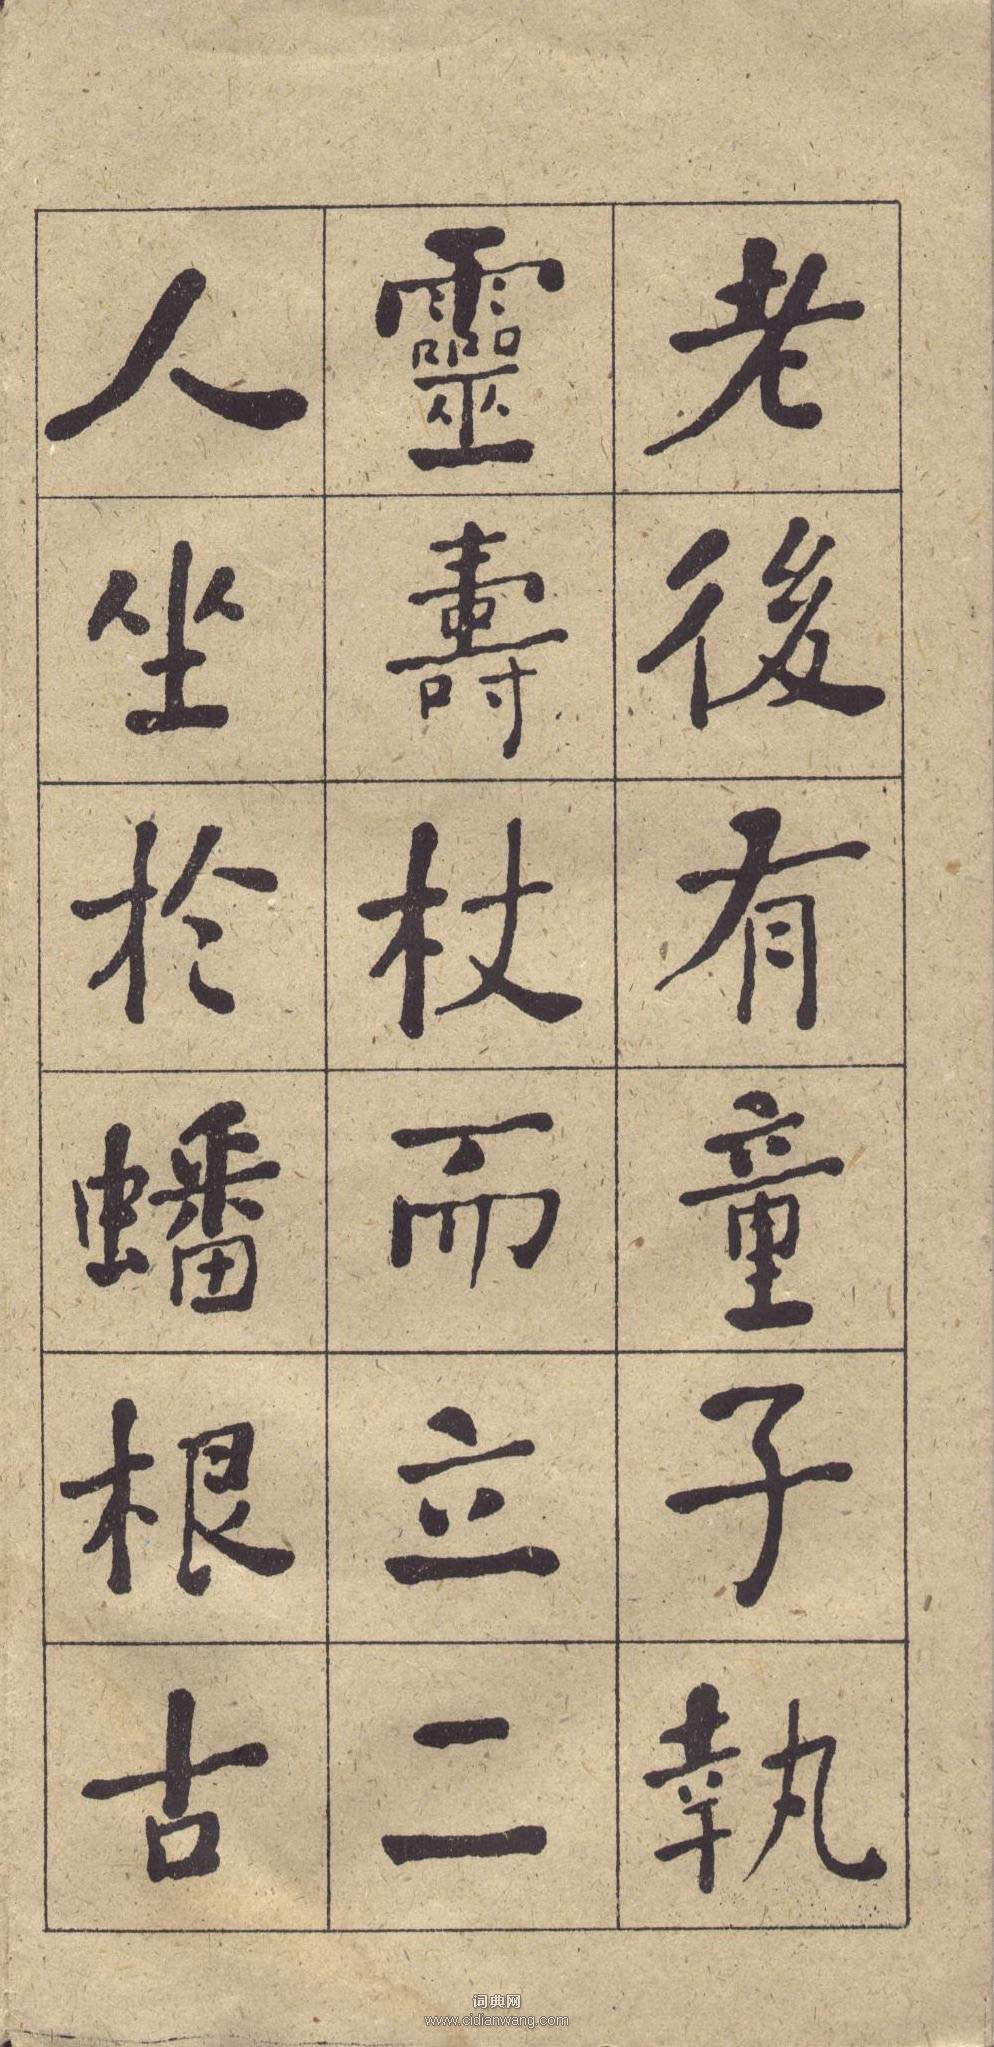 老後有童子執
靈壽杖而立二
人坐於蟠根古
词典网
www.cidianwang.com